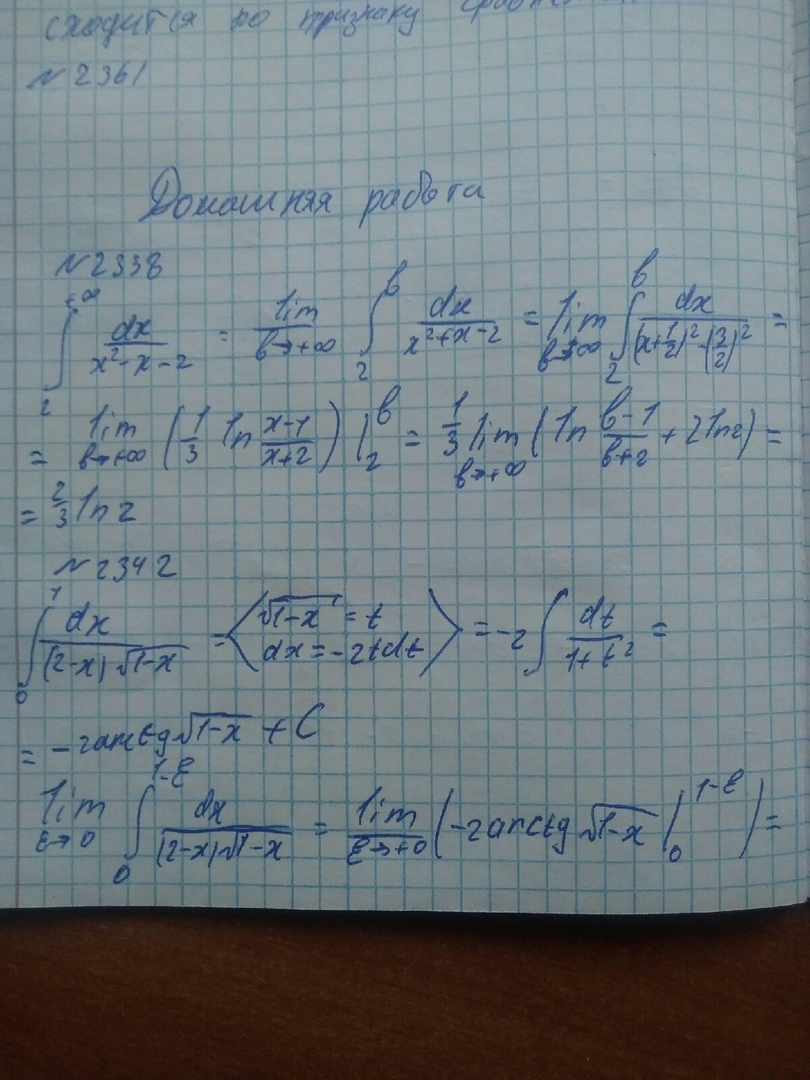 сходится по признаку
N 2361
Домашняя работа
N 2338
∫_2^{+∞} dx/(x²-x-2) = lim_{b→+∞} ∫_2^b dx/(x²+x-2) = lim_{b→+∞} ∫_2^b dx/((x+1/2)²-(3/2)²) =
= lim_{b→+∞} (1/3 ln (x-1)/(x+2)) |_2^b = 1/3 lim_{b→+∞} (ln (b-1)/(b+2) + 2ln2) =
= 2/3 ln 2
N 2342
∫_0^1 dx/((2-x)√(1-x)) = <√(1-x) = t; dx = -2tdt> = -2 ∫ dt/(1+t²) =
= -2arctg√(1-x) + C
lim_{ε→0} ∫_0^{1-ε} dx/((2-x)√(1-x)) = lim_{ε→+0} (-2arctg √(1-x) |_0^{1-ε}) =